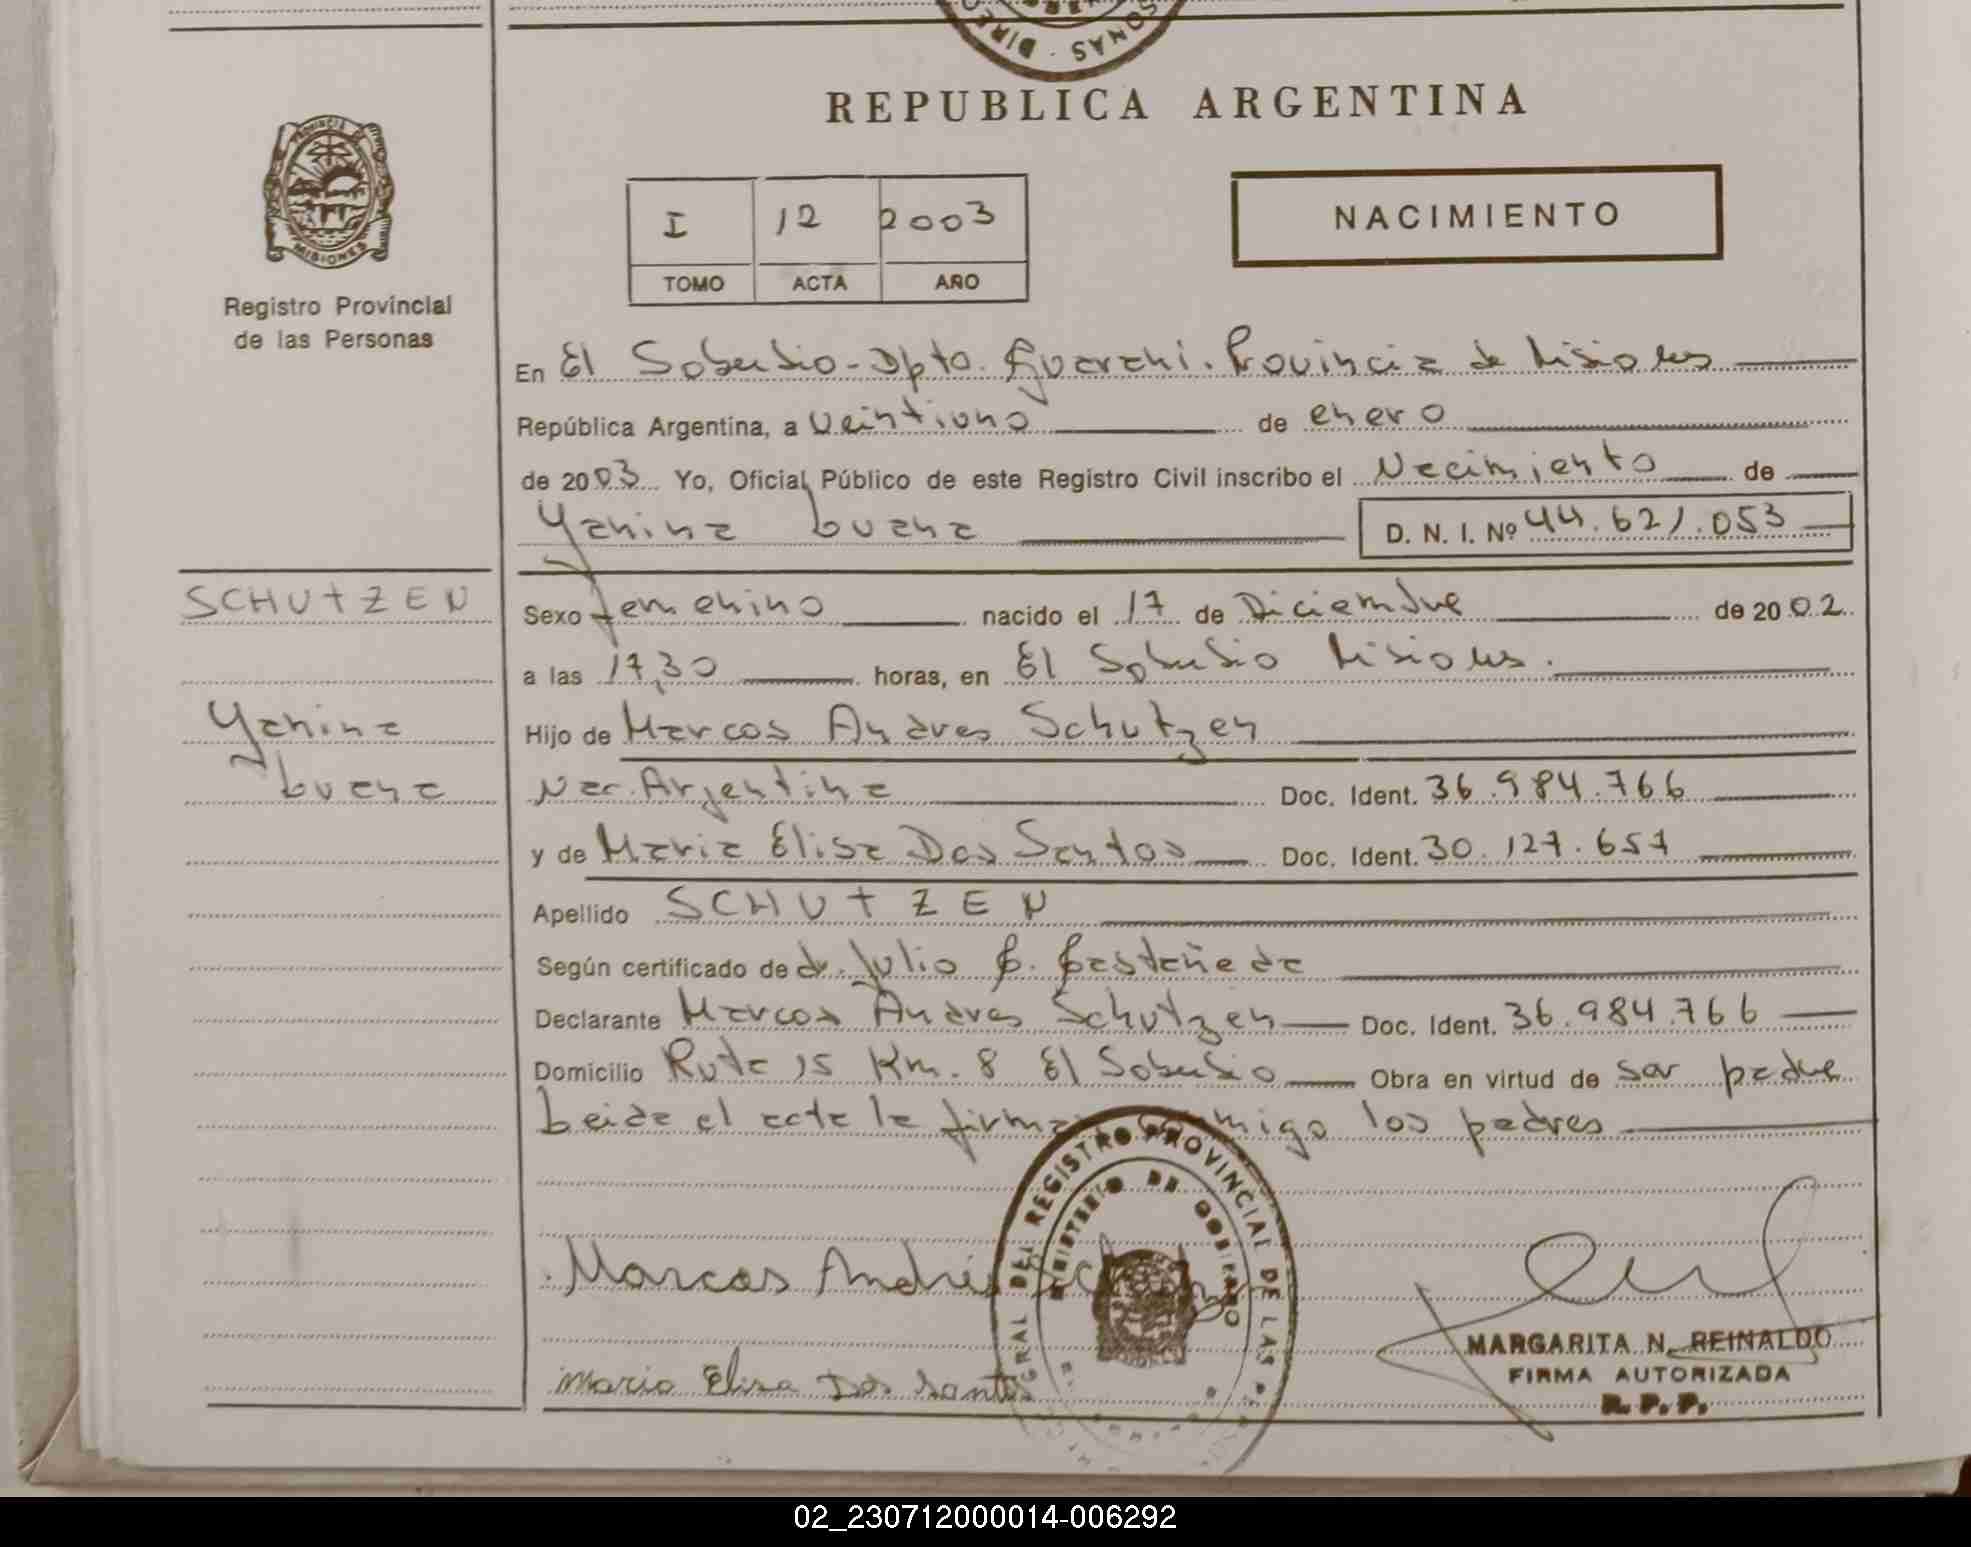 DIRE · SONAS
REPUBLICA ARGENTINA
PROVINCIA
MISIONES
Registro Provincial
de las Personas
I 12 2003
TOMO ACTA AÑO
NACIMIENTO
En El Soberbio - Dpto. Guarani. Provincia de Misiones
República Argentina, a veintiuno de enero
de 2003 Yo, Oficial Público de este Registro Civil inscribo el Nacimiento de
Yanina Luana D. N. I. Nº 44.621.053
SCHUTZEN
Sexo femenino nacido el 17 de Diciembre de 2002
a las 17,30 horas, en El Soberbio Misiones.
Yanina
Luana
Hijo de Marcos Andres Schutzen
Nac. Argentina Doc. Ident. 36.984.766
y de Maria Elisa Dos Santos Doc. Ident. 30.127.657
Apellido SCHUTZEN
Según certificado de dr. Julio C. Castañeda
Declarante Marcos Andres Schutzen Doc. Ident. 36.984.766
Domicilio Ruta 15 Km. 8 El Soberbio Obra en virtud de ser padre
Leida el acta la firman conmigo los padres
REGISTRO PROVINCIAL DE LAS
MINISTERIO DE GOBIERNO
Marcos Andrés
Maria Elisa Dos Santos
MARGARITA N. REINALDO
FIRMA AUTORIZADA
R. P. P.
02_230712000014-006292